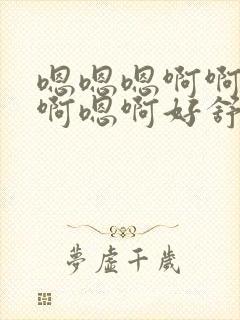 嗯嗯嗯啊啊
啊嗯啊好舒
梦虚千岁